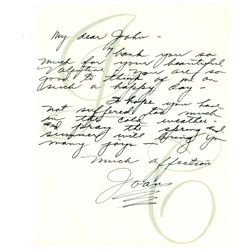 My dear John -
Thank you so
much for your beautiful
Valentine - You are so
good to think of me on
such a happy day -
I hope you have
not suffered too much
in this cold weather.
and pray the spring and
summer will bring you
many joys -
Much affection
Joan
JC